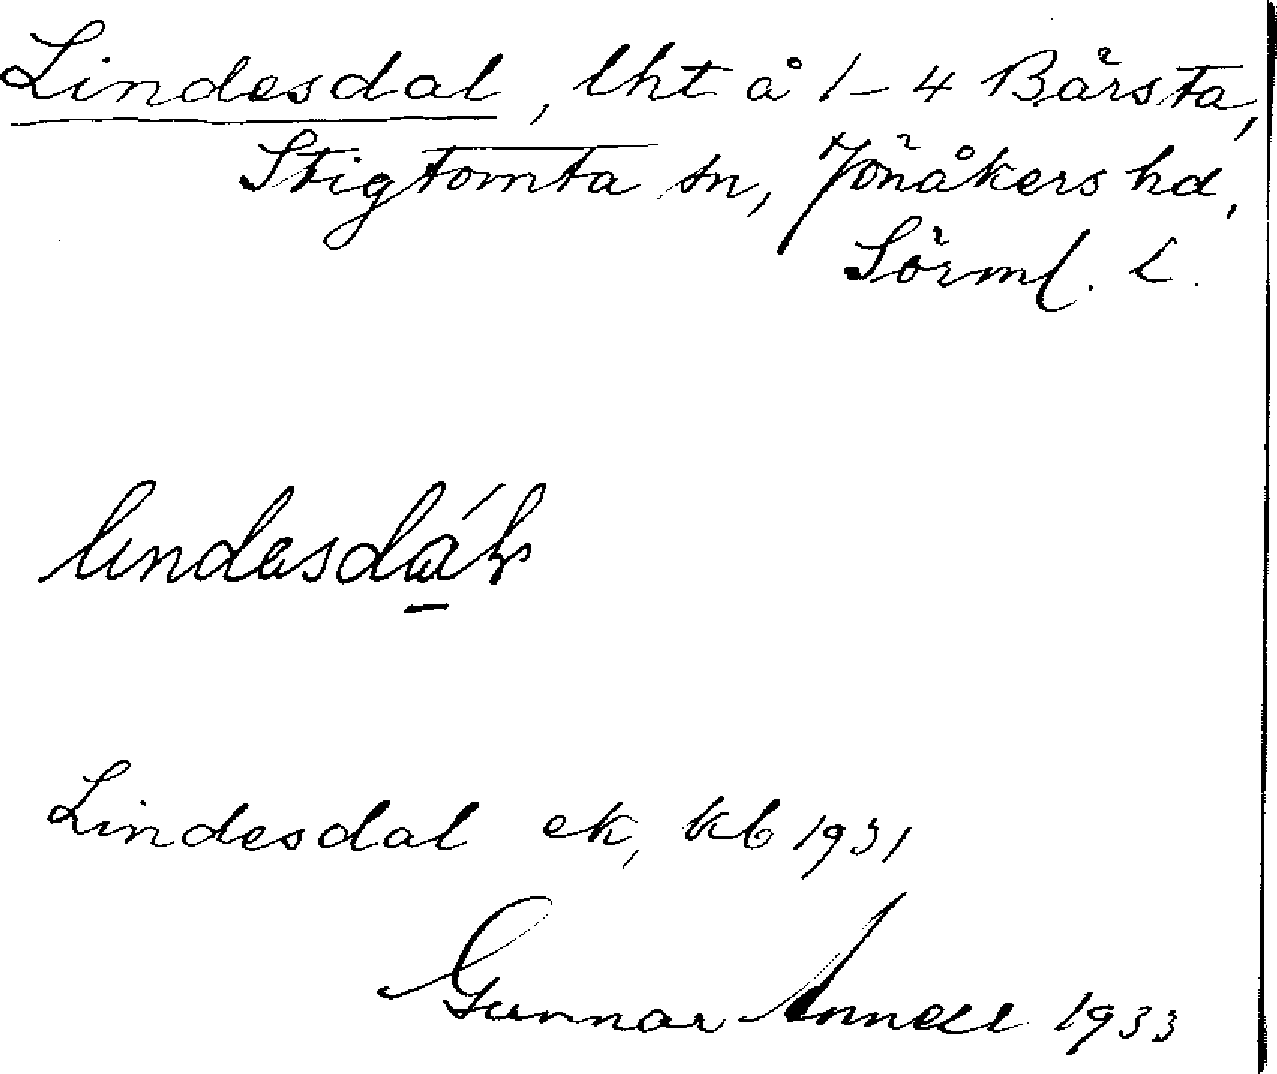 Lindesdal, lht å 1-4 Bärsta,
Stigtomta sn, Jönåkers hd,
Sörml. L.
lindesdá̱l
Lindesdal ek, kb 1931
Gunnar Annell 1933